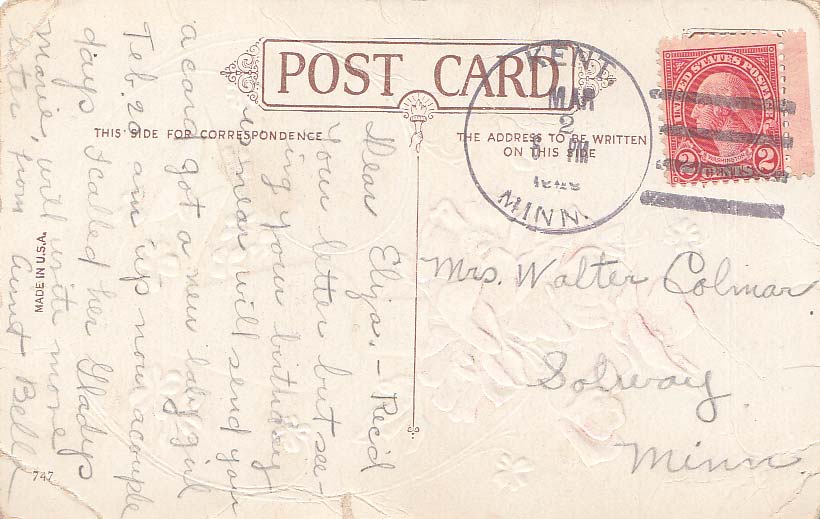 POST CARD
THIS SIDE FOR CORRESPONDENCE
THE ADDRESS TO BE WRITTEN
ON THIS SIDE
KENT
MAR
2
PM
MINN.
UNITED STATES POSTAGE
WASHINGTON
2 CENTS 2
Mrs. Walter Colmar
Solway
Minn
Dear Eliza. - Rec'd
your letter but see-
ing your birthday
is near will send you
a card got a new baby girl
Feb. 20 am up now a couple
days I called her Gladys
Marie, will write more
later from Aunt Bell
MADE IN U.S.A.
747